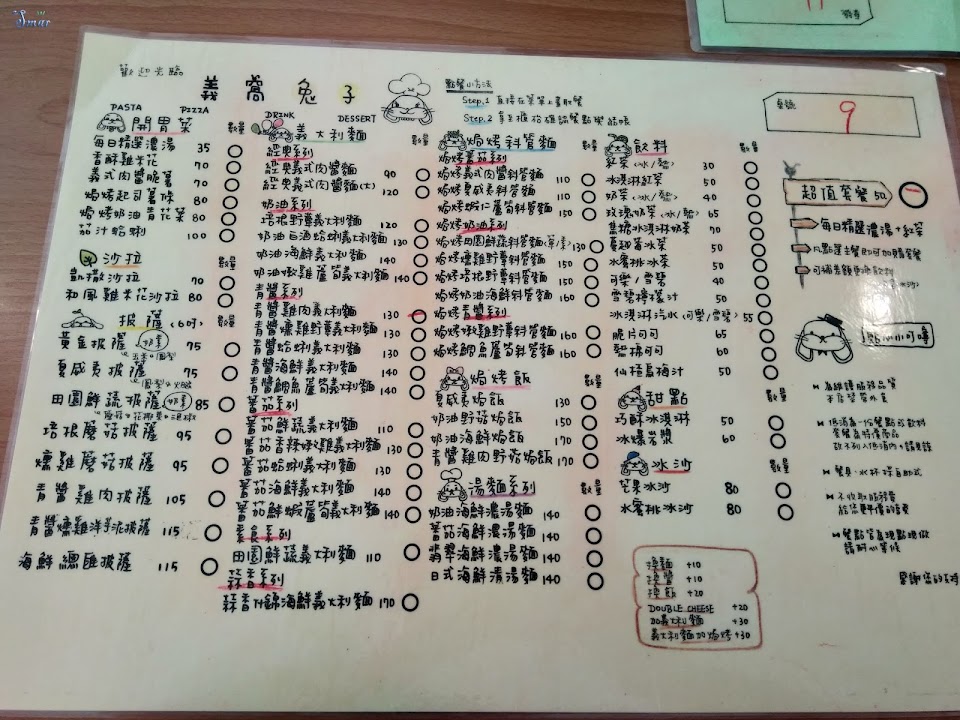 歡迎光臨
義窩兔子
PASTA PIZZA
DRINK DESSERT
點餐小方法
Step.1 直接在菜單上畫取餐
Step.2
桌號
9
開胃菜 數量
每日精選濃湯 35
香酥雞米花 70
義式肉醬脆薯 70
焗烤起司薯條 80
焗烤奶油青花菜 80
茄汁蛤蜊 100
沙拉 數量
凱撒沙拉 70
和風雞米花沙拉 80
披薩(6吋) 數量
黃金披薩 (奶素) 75
夏威夷披薩 75
田園鮮蔬披薩 (奶素) 85
培根蘑菇披薩 95
燻雞蘑菇披薩 95
青醬雞肉披薩 105
青醬燻雞洋芋泥披薩 115
海鮮總匯披薩 115
義大利麵 數量
經典系列
經典義式肉醬麵 90
經典義式肉醬麵(大) 120
奶油系列
培根野蕈義大利麵 130
奶油白酒蛤蜊義大利麵 130
奶油海鮮義大利麵 140
奶油嫩雞蘆筍義大利麵 140
青醬系列
青醬雞肉義大利麵 130
青醬燻雞野蕈義大利麵 130
青醬蛤蜊義大利麵 130
青醬海鮮義大利麵 140
青醬鯛魚蘆筍義大利麵 140
蕃茄系列
蕃茄鮮蔬義大利麵 110
蕃茄香辣嫩雞義大利麵 130
蕃茄蛤蜊義大利麵 130
蕃茄海鮮義大利麵 140
蕃茄鮮蝦蘆筍義大利麵 140
素食系列
田園鮮蔬義大利麵 110
蒜香系列
蒜香什錦海鮮義大利麵 170
焗烤斜管麵 數量
焗烤蕃茄系列
焗烤義式肉醬斜管麵 110
焗烤夏威夷斜管麵 130
焗烤蝦仁蘆筍斜管麵 150
焗烤奶油系列
焗烤田園鮮蔬斜管麵(奶素) 130
焗烤燻雞野蕈斜管麵 150
焗烤培根野蕈斜管麵 150
焗烤奶油海鮮斜管麵 160
焗烤青醬系列
焗烤嫩雞野蕈斜管麵 160
焗烤鯛魚蘆筍斜管麵 160
焗烤飯 數量
夏威夷焗飯 130
奶油野菇焗飯 150
奶油海鮮焗飯 170
青醬雞肉野菇焗飯 170
湯麵系列 數量
奶油海鮮濃湯麵 140
蕃茄海鮮濃湯麵 140
翡翠海鮮濃湯麵 140
日式海鮮清湯麵 140
飲料 數量
紅茶(冰/熱) 30
冰淇淋紅茶 50
奶茶(冰/熱) 40
玫瑰奶茶(冰/熱) 65
焦糖冰淇淋奶茶 70
蔓越莓冰茶 50
水蜜桃冰茶 50
可樂/雪碧 40
雪碧檸檬汁 50
冰淇淋汽水(可樂/雪碧) 55
脆片可可 65
熱棉可可 60
仙楂烏梅汁 50
甜點 數量
巧酥冰淇淋 50
冰爆岩漿 60
冰沙 數量
芒果冰沙 80
水蜜桃冰沙 80
換麵 +10
換醬 +10
換飯 +20
DOUBLE CHEESE +20
加義大利麵 +30
義大利麵加焗烤 +30
超值套餐 50
每日精選濃湯+紅茶
凡點選主餐即可加購套餐
可補差額更換飲料
貼心小叮嚀
為維護服務品質
餐具、水杯採自助式
不收取服務費
餐點皆為現點現做
請耐心等候